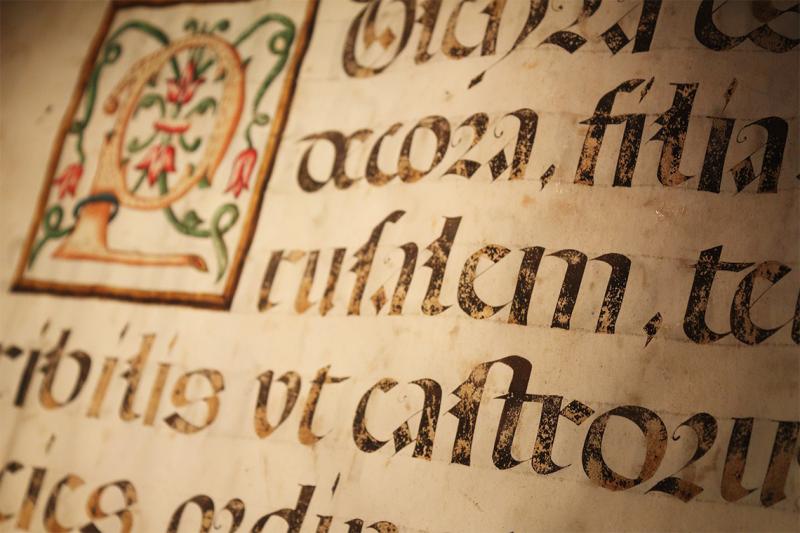 P
ulchra
decora, filia
ruſalem, te
ribilis vt caſtroꝛu
cies ordin